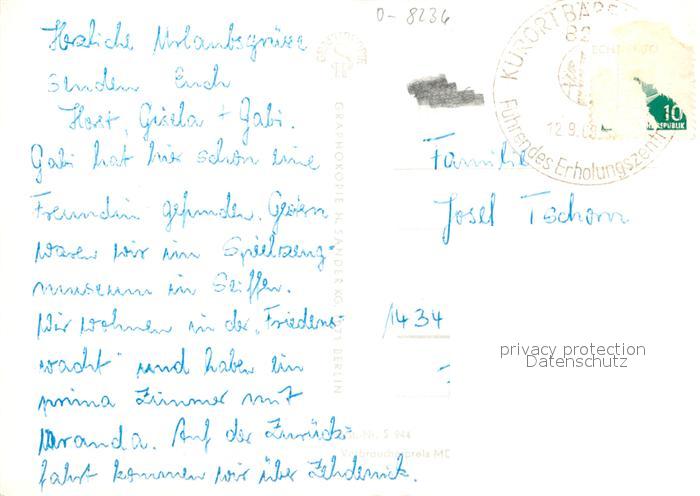 D-8234
Herzliche Urlaubsgrüsse
senden Euch
Horst, Gisela + Gabi.
Gabi hat hier schon eine
Freundin gefunden. Gestern
waren wir im Spielzeug-
museum in Seiffen.
Wir wohnen in der „Friedens-
wacht" und haben ein
prima Zimmer mit
Veranda. Auf der Zurück-
fahrt kommen wir über Zehdenick.
GRAPHOKOPIE H. SANDER KG, BERLIN
S 944
Verbraucherpreis MD
KURORT BÄRE
Führendes Erholungszentr
12.9.6
10
REPUBLIK
Familie
Josef Tschorn
1434
privacy protection
Datenschutz